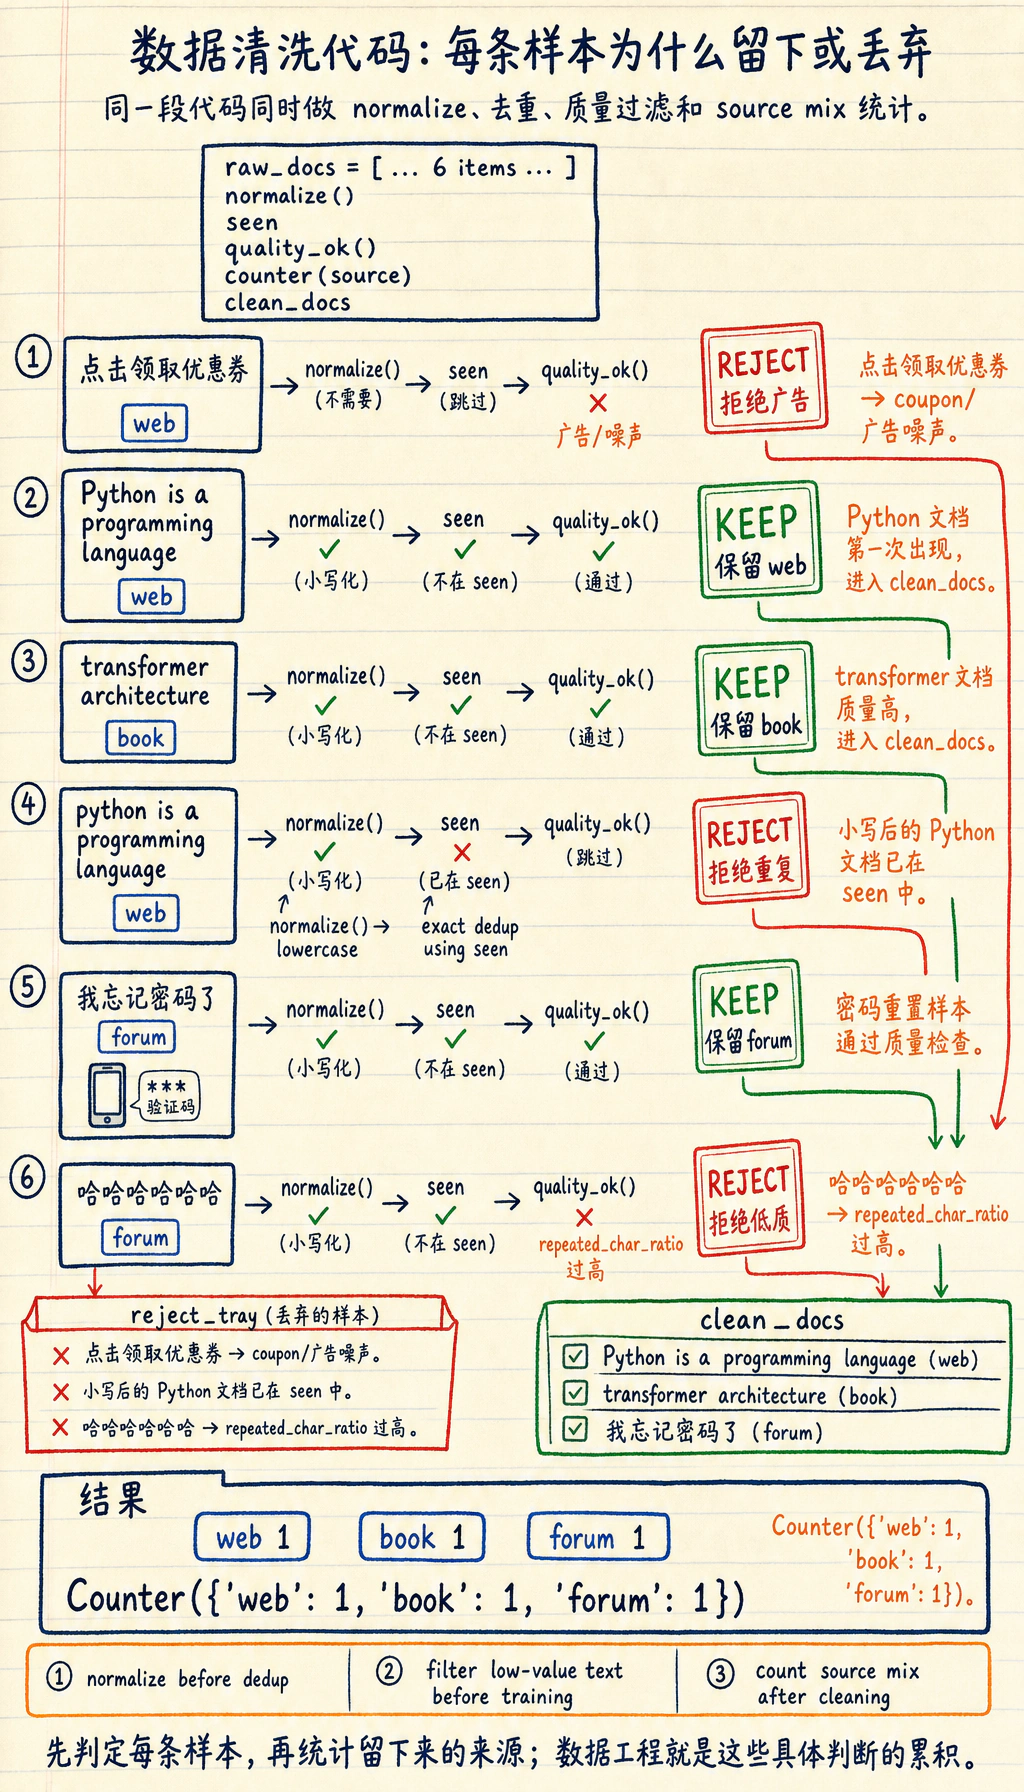 数据清洗代码：每条样本为什么留下或丢弃
同一段代码同时做 normalize、去重、质量过滤和 source mix 统计。
raw_docs = [ ... 6 items ... ]
normalize()
seen
quality_ok()
counter(source)
clean_docs
①
点击领取优惠券
web
normalize()
(不需要)
seen
(跳过)
quality_ok()
广告/噪声
REJECT
拒绝广告
点击领取优惠券
→ coupon/
广告噪声。
②
Python is a
programming
language
web
normalize()
(小写化)
seen
(不在 seen)
quality_ok()
(通过)
KEEP
保留 web
Python 文档
第一次出现，
进入 clean_docs。
③
transformer
architecture
book
normalize()
(小写化)
seen
(不在 seen)
quality_ok()
(通过)
KEEP
保留 book
transformer 文档
质量高，
进入 clean_docs。
④
python is a
programming
language
web
normalize()
(小写化)
normalize() →
lowercase
seen
(已在 seen)
exact dedup
using seen
quality_ok()
(跳过)
REJECT
拒绝重复
小写后的 Python
文档已在
seen 中。
⑤
我忘记密码了
forum
***
验证码
normalize()
(小写化)
seen
(不在 seen)
quality_ok()
(通过)
KEEP
保留 forum
密码重置样本
通过质量检查。
⑥
哈哈哈哈哈哈
forum
normalize()
(小写化)
seen
(不在 seen)
quality_ok()
repeated_char_ratio
过高
REJECT
拒绝低质
哈哈哈哈哈哈
→ repeated_char_ratio
过高。
reject_tray (丢弃的样本)
点击领取优惠券 → coupon/广告噪声。
小写后的 Python 文档已在 seen 中。
哈哈哈哈哈哈 → repeated_char_ratio 过高。
clean_docs
Python is a programming language (web)
transformer architecture (book)
我忘记密码了 (forum)
结果
web 1
book 1
forum 1
Counter({'web': 1, 'book': 1, 'forum': 1})
Counter({'web': 1,
'book': 1,
'forum': 1})。
① normalize before dedup
② filter low-value text
before training
③ count source mix
after cleaning
先判定每条样本，再统计留下来的来源；数据工程就是这些具体判断的累积。